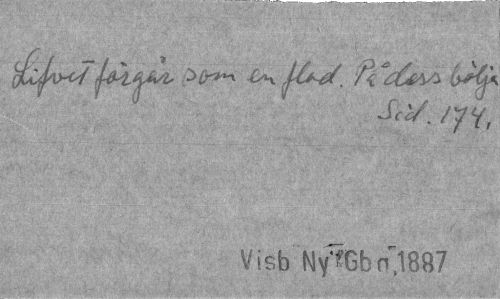 Lifvet förgår som en flod. På dess bölja
Sid. 174.
Visb Ny Gbn, 1887